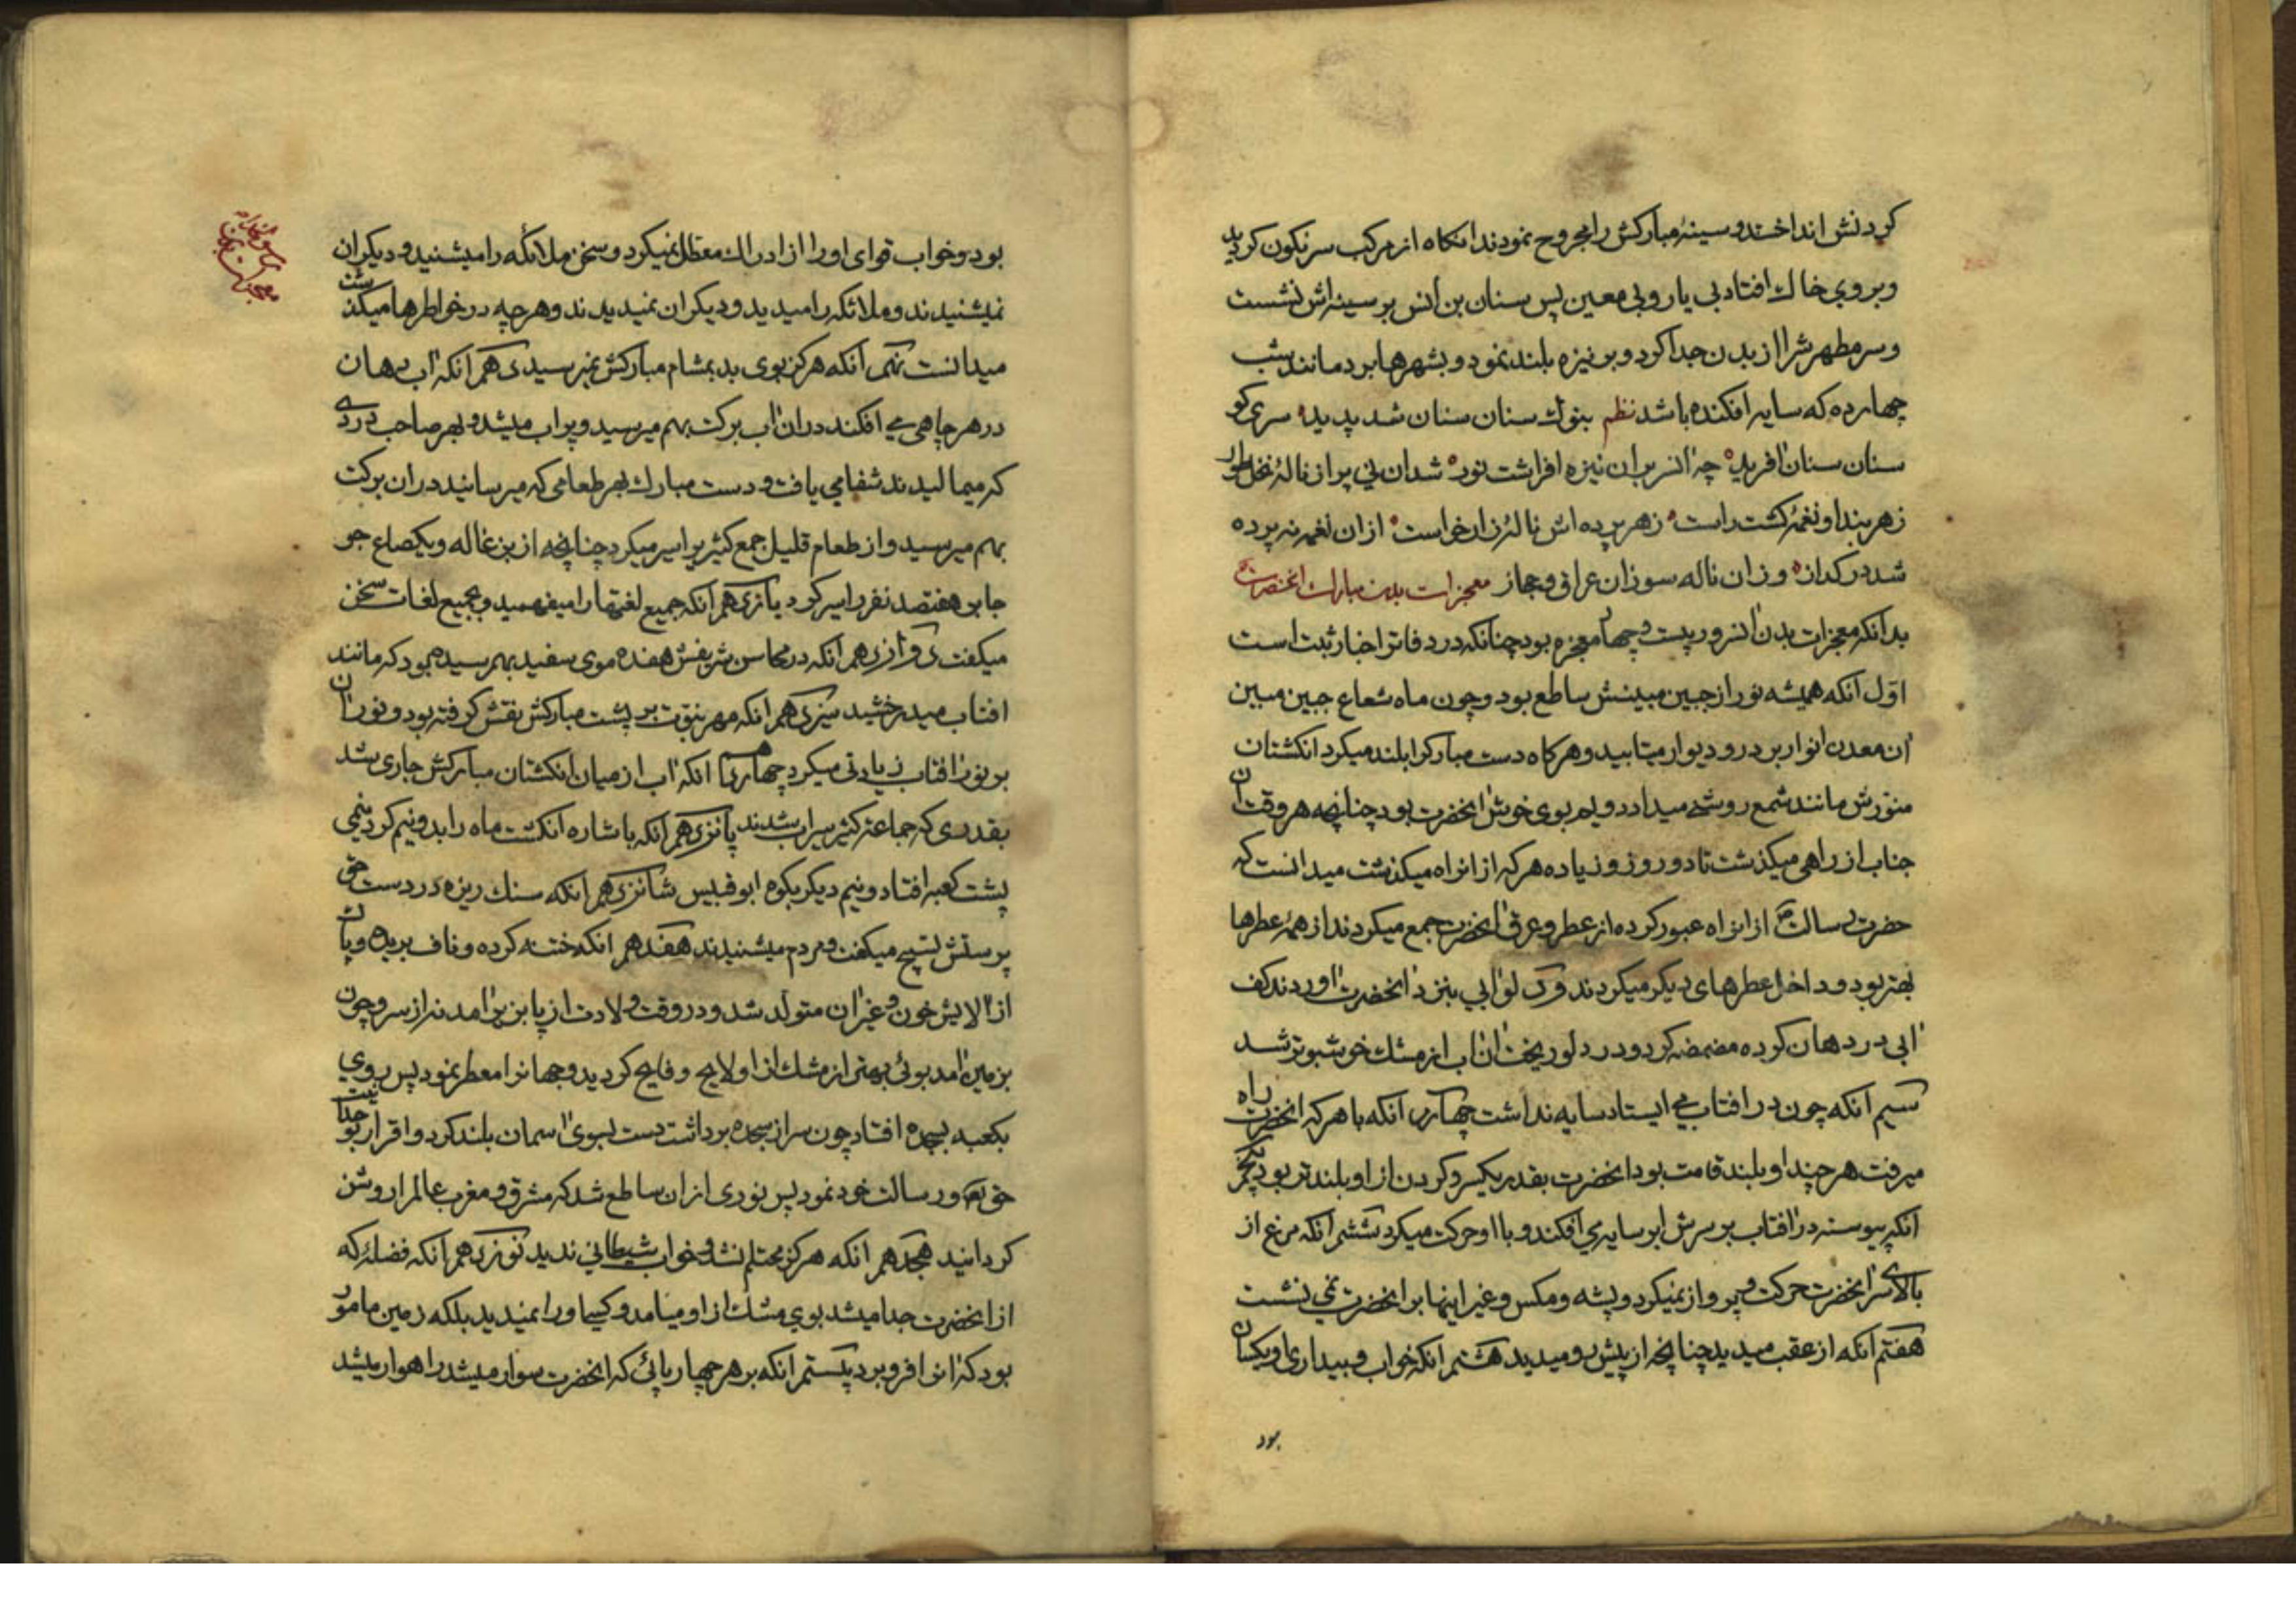 کردنش انداختند و سینهٔ مبارکش را مجروح نمودند انکاه از مرکب سرنکون کردید
و بروی خاک افتاد بی یار و بی معین پس سنان بن انس بر سینه اش نشست
و سر مطهرش را از بدن جدا کرد و بر نیزه بلند نمود و بشهرها برد مانند شب
چهارده که سایه افکنده باشد نظم بنوک سنان سنان شد پدید سری کو
سنان سنان افرید چه انسر بران نیزه افراشت نور شد ان نی پر از نالهٔ نخل طور
زهر بند او نغمهٔ کشت راست زهر پرده اش نالهٔ زار خواست ازان نغمه نه پرده
شد در کداز وزان ناله سوزان عراق و حجاز معجزات بدن مبارک انحضرت
بدانکه معجزات بدن انسرور بیست و چهار معجزه بود چنانکه در دفاتر اخبار ثبت است
اوّل آنکه همیشه نور از جبین مبینش ساطع بود و چون ماه شعاع جبین مبین
ان معدن انوار بر در و دیوار میتابید و هرکاه دست مبارکرا بلند میکرد انکشتان
منوّرش مانند شمع روشنی میداد دویم بوی خوش انحضرت بود چنانچه هر وقت ان
جناب از راهی میکذشت تا دو روز و زیاده هرکه از انراه میکذشت میدانست که
حضرت رسالت از انراه عبور کرده از عطر و عرق انحضرت جمع میکردند از همهٔ عطرها
بهتر بود و داخل عطرهای دیکر میکردند و دلو ابی بنزد انحضرت اوردند کف
ابی در دهان کرده مضمضه کرد و در دلو ریخت ان اب از مشک خوشبوتر شد
سیم آنکه چون در افتاب می ایستاد سایه نداشت چهارم آنکه با هرکه انحضرت راه
میرفت هرچند او بلند قامت بود انحضرت بقدر یکسر و کردن از او بلندتر بود پنجم
آنکه پیوسته در افتاب بر سرش ابر سایه می افکند و با او حرکت میکرد ششم آنکه مرغ از
بالای سر انحضرت حرکت و پرواز نمیکرد و پشه و مکس و غیر اینها بر انحضرت نمی نشست
هفتم آنکه از عقب میدید چنانچه از پیش رو میدید هشتم آنکه خواب و بیداری او یکسان
بود
بود و خواب قوای او را از ادراک معطل نمیکرد و سخن ملائکه را میشنید و دیکران
نمیشنیدند و ملائکه را میدید و دیکران نمیدیدند و هرچه در خواطرها میکذشت
میدانست نهم آنکه هرکز بوی بد بمشام مبارکش نمیرسید دهم آنکه اب دهان
در هر چاهی می افکند در ان اب برکت بهم میرسید و پر اب میشد و بهر صاحب دردی
که میمالیدند شفا می یافت و دست مبارک بهر طعامی که میرسانید در ان برکت
بهم میرسید و از طعام قلیل جمع کثیر را سیر میکرد چنانچه از بزغاله و یکصاع جو
جابر هفتصد نفر را سیر کرد یازدهم آنکه جمیع لغتها را میفهمید و بجمیع لغات سخن
میکفت دوازدهم آنکه در محاسن شریفش هفده موی سفید بهم رسیده بود که مانند
افتاب میدرخشید سیزدهم آنکه مهر نبوّت بر پشت مبارکش نقش کرفته بود و نور ان
بر نور افتاب زیادتی میکرد چهاردهم آنکه اب از میان انکشتان مبارکش جاری شد
بقدری که جماعت کثیر سیراب شدند پانزدهم آنکه باشاره انکشت ماه را بدو نیم کرد نیمی
پشت کعبه افتاد و نیم دیکر بکوه ابوقبیس شانزدهم آنکه سنک ریزه در دست حق
پرستش تسبیح میکفت و مردم میشنیدند هفدهم آنکه ختنه کرده و ناف بریده و پاک
از الایش خون و غیر ان متولّد شد و در وقت ولادت از پا بزیر امد نه از سر و چون
بزمین امد بوئی بهتر از مشک از او لایح و فایح کردید و جهانرا معطر نمود پس بروی
بکعبه بسجده افتاد چون سر از سجده برداشت دست بسوی اسمان بلند کرد و اقرار بوحدانیت
حق تع و رسالت خود نمود پس نوری از ان ساطع شد که مشرق و مغرب عالم را روشن
کردانید هجدهم آنکه هرکز محتلم نشد و خواب شیطانی ندید نوزدهم آنکه فضلهٔ که
از انحضرت جدا میشد بوی مشک از او میامد و کسی او را نمیدید بلکه زمین مامور
بود که انرا فرو برد بیستم آنکه بر هر چهارپائی که انحضرت سوار میشد راهوار میشد